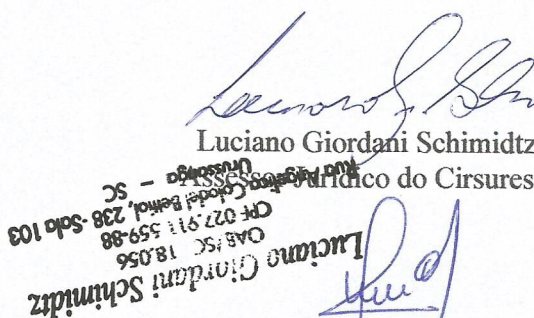 Luciano Giordani Schimidtz
Assessor Jurídico do Cirsures
Luciano Giordani Schimidtz
OAB/SC 18.056
CPF 027.911.559-88
Rua Angelica Colodel Bettiol, 238 - Sala 103
Urussanga - SC